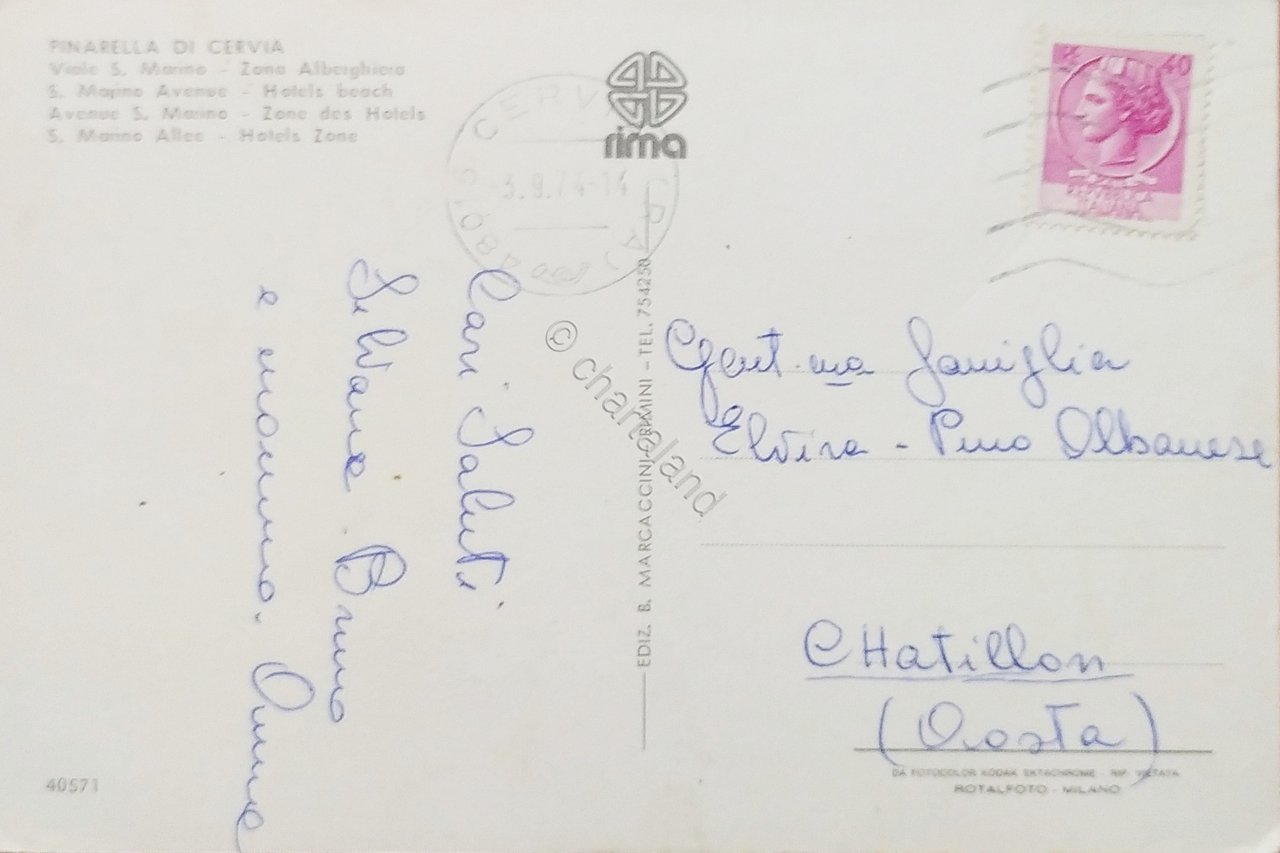 PINARELLA DI CERVIA
Viale S. Marino - Zona Alberghiera
S. Marino Avenue - Hotels beach
Avenue S. Marino - Zone des Hotels
S. Marino Allee - Hotels Zone
rima
CERVIA
3.9.74-14
40
REPUBBLICA
ITALIANA
Cari Saluti
Silvana Bruno
e
Gent.ma famiglia
Elvira - Pino Albanese
CHatillon
(Aosta)
EDIZ. B. MARCACCINI - RIMINI - TEL. 754250
© chartaland
40571
DA FOTOCOLOR KODAK EKTACHROME - RIP. VIETATA
ROTALFOTO - MILANO